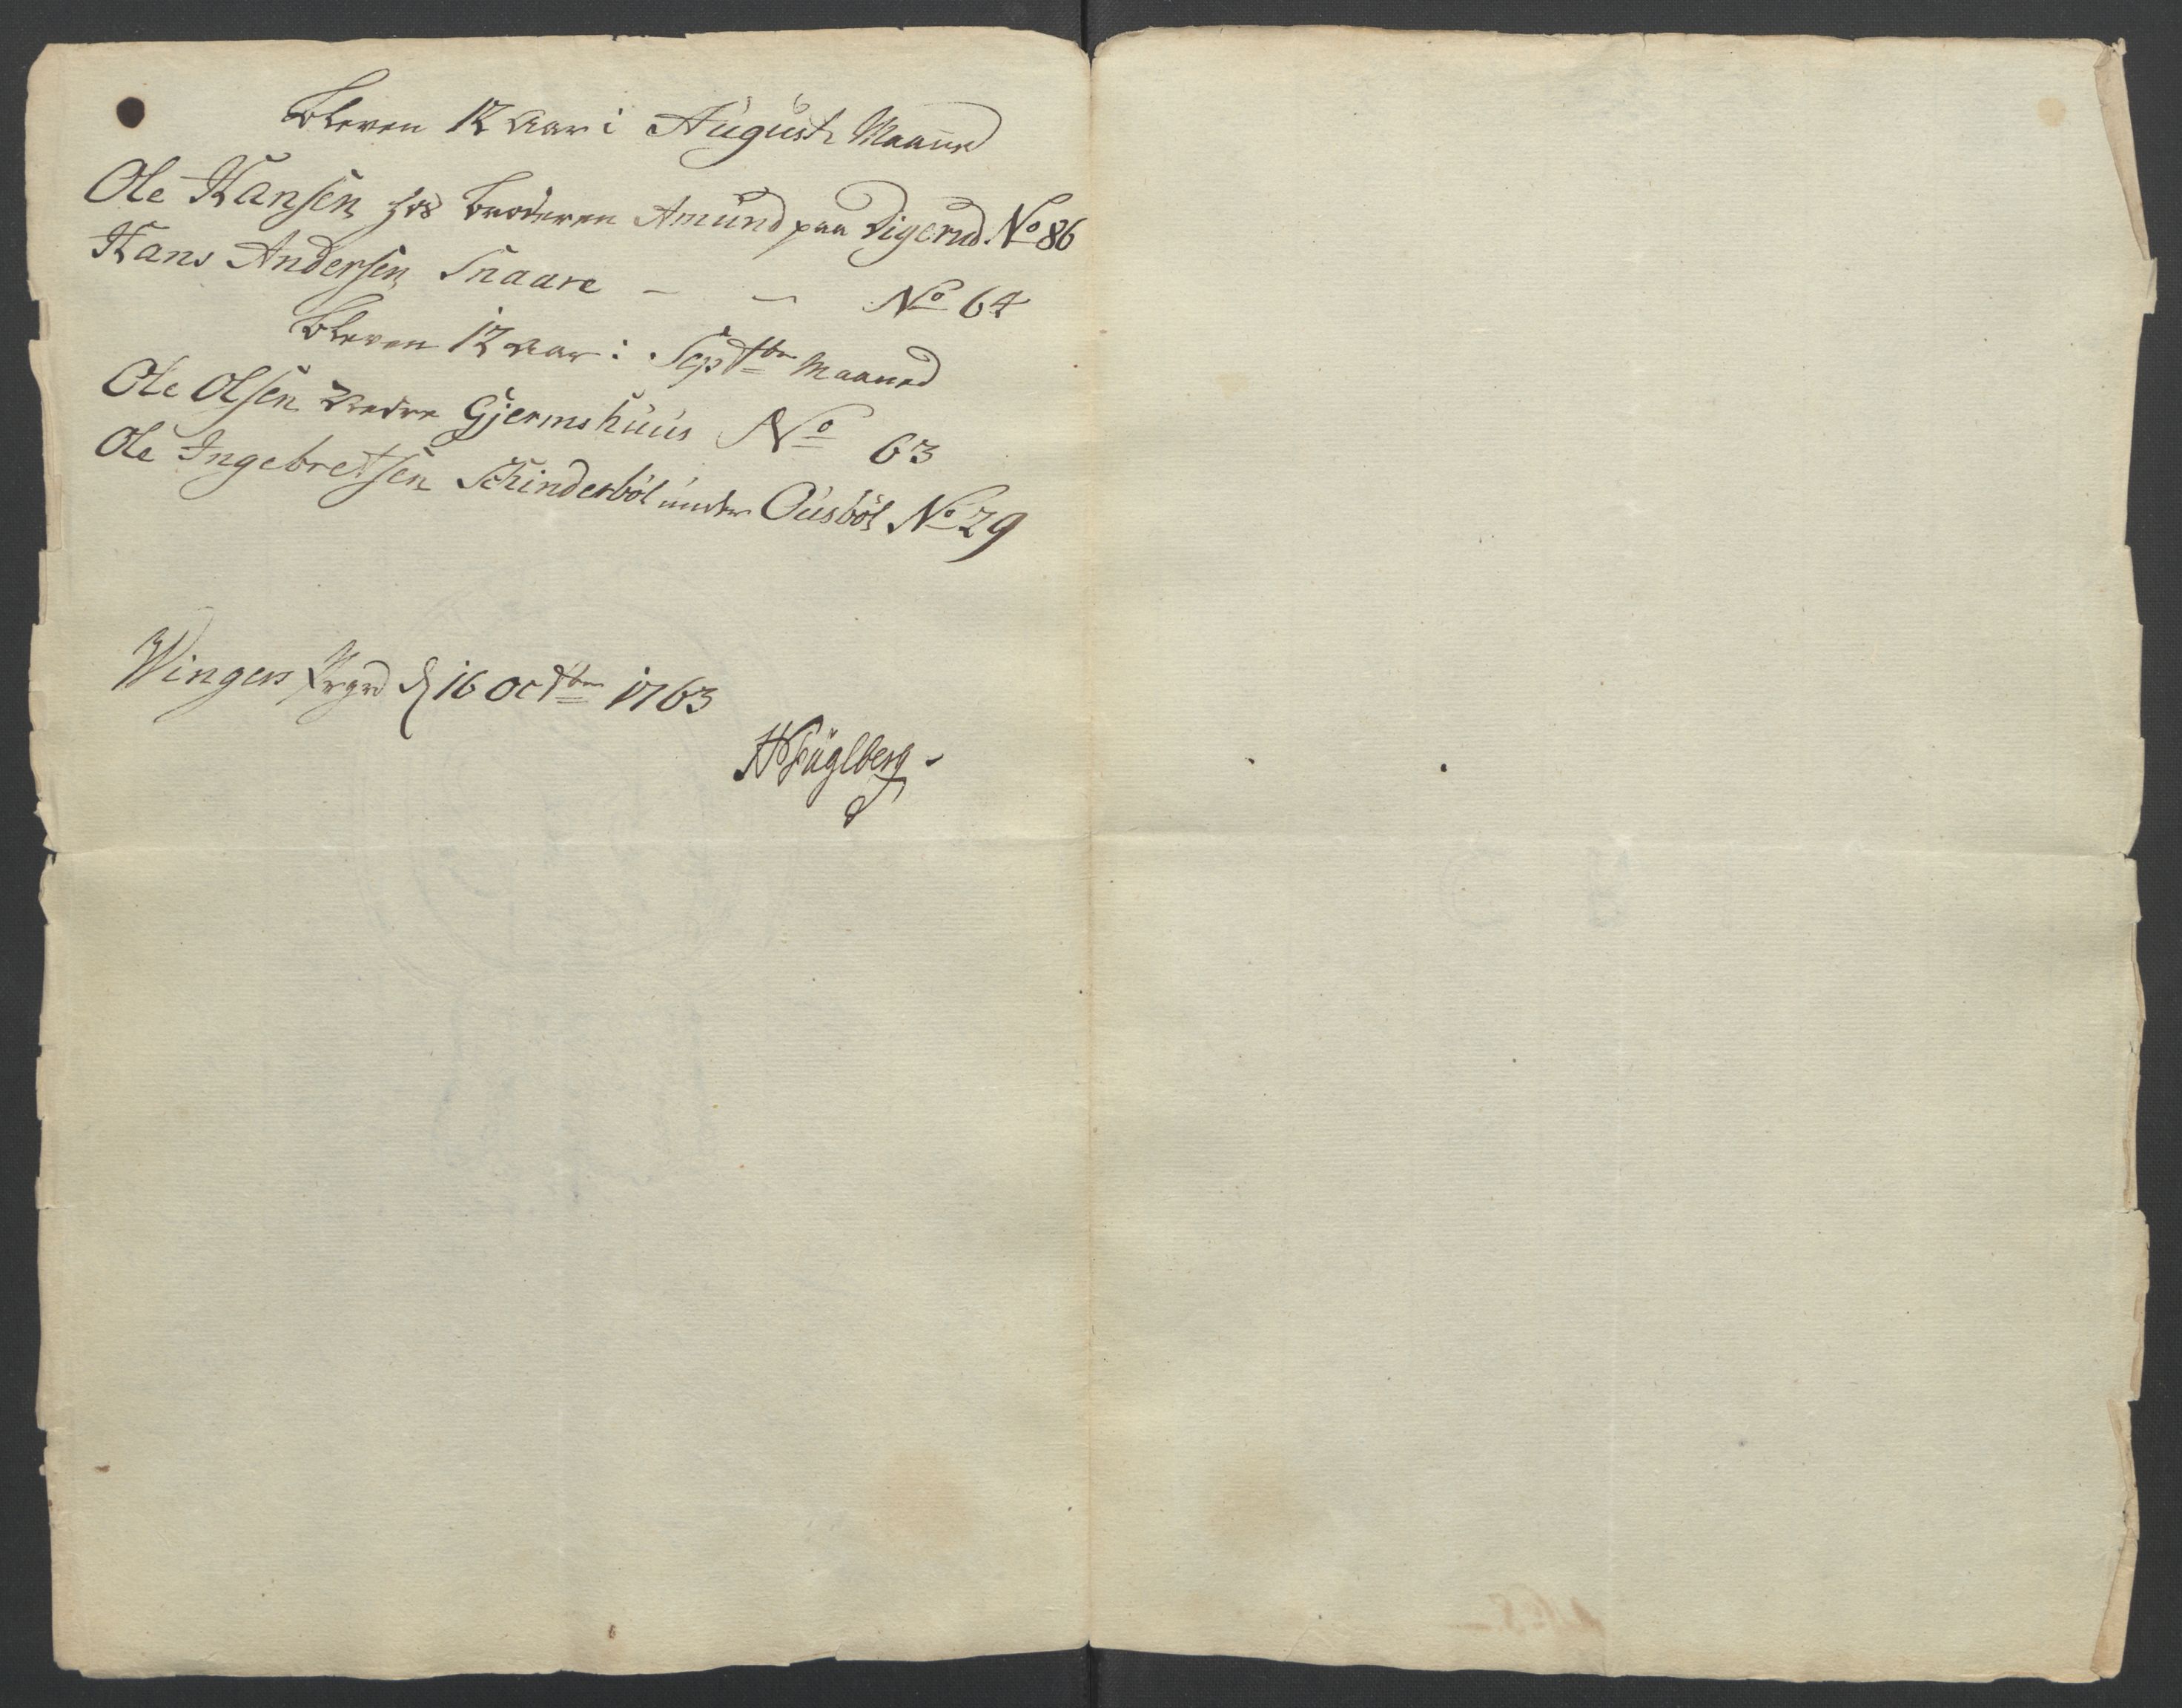 bleven 12 Aar i August Maaned
Ole Hansen hos broderen Amund paa Digerud No 86
Hans Andersen Snaare - - No 64
bleven 12 Aar i Septbr Maaned
Ole Olsen Nedre Gjermshuus No 63
Ole Ingebretsen Schinderböl under Ousböl No 29
Winger Prgrd d 16 Octbr 1763
H Fuglberg